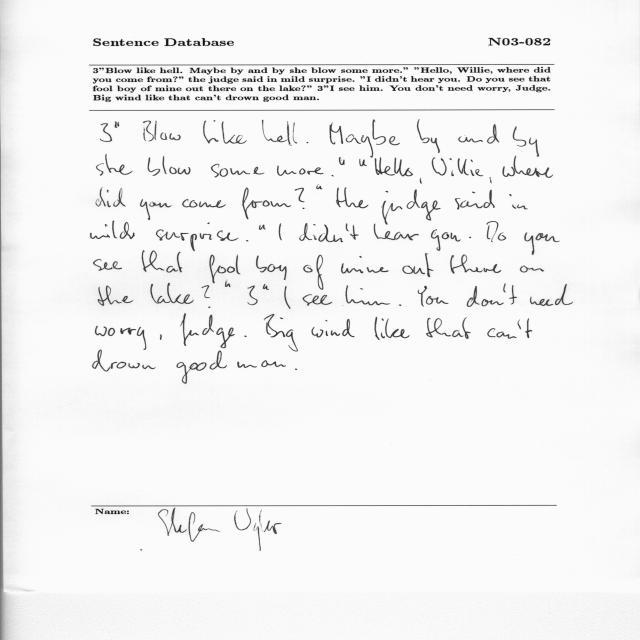 Sentence Database N03-082
3"Blow like hell. Maybe by and by she blow some more." "Hello, Willie, where did
you come from?" the judge said in mild surprise. "I didn't hear you. Do you see that
fool boy of mine out there on the lake?" 3"I see him. You don't need worry, Judge.
Big wind like that can't drown good man.
3" Blow like hell. Maybe by and by
she blow some more." "Hello, Willie, where
did you come from?" the judge said in
mild surprise. "I didn't hear you. Do you
see that fool boy of mine out there on
the lake?" 3" I see him. You don't need
worry, Judge. Big wind like that can't
drown good man.
Name: Stefan